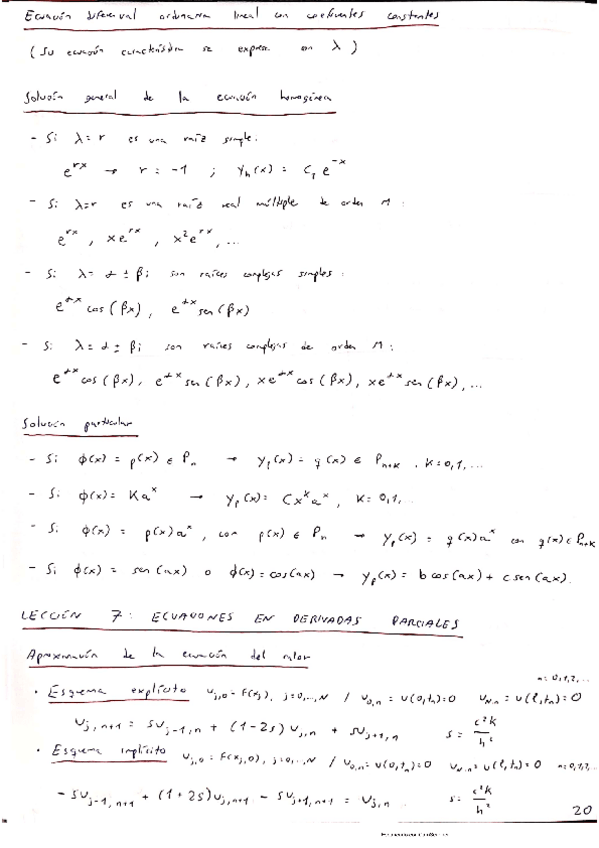 Ecuación diferencial ordinaria lineal con coeficientes constantes
(Su ecuación característica se expresa con λ)
Solución general de la ecuación homogénea
- Si λ=r es una raíz simple:
e^{rx} → r = -1 ; y_h(x) = C_1 e^{-x}
- Si λ=r es una raíz real múltiple de orden M:
e^{rx}, xe^{rx}, x²e^{rx}, ...
- Si λ= α ± βi son raíces complejas simples:
e^{αx}cos(βx), e^{αx}sen(βx)
- Si λ= α ± βi son raíces complejas de orden M:
e^{αx}cos(βx), e^{αx}sen(βx), xe^{αx}cos(βx), xe^{αx}sen(βx), ...
Solución particular
- Si φ(x) = p(x) ∈ P_n → y_p(x) = q(x) ∈ P_{n+k}, k=0,1,...
- Si φ(x) = Ka^x → y_p(x) = Cx^k a^x, k=0,1,..
- Si φ(x) = p(x)a^x, con p(x) ∈ P_n → y_p(x) = q(x)a^x con q(x) ∈ P_{n+k}
- Si φ(x) = sen(ax) o φ(x)=cos(ax) → y_p(x) = bcos(ax) + csen(ax).
LECCIÓN 7: ECUACIONES EN DERIVADAS PARCIALES
Aproximación de la ecuación del calor
n=0,1,2,...
· Esquema explícito u_{j,0} = F(x_j), j=0,...,N / u_{0,n} = u(0,t_n)=0 u_{N,n} = u(l,t_n)=0
u_{j,n+1} = su_{j-1,n} + (1-2s)u_{j,n} + su_{j+1,n} s = c²k/h²
· Esquema implícito u_{j,0} = F(x_j,0), j=0,...,N / u_{0,n} = u(0,t_n)=0 u_{N,n} = u(l,t_n)=0 n=0,1,2,...
-su_{j-1,n+1} + (1+2s)u_{j,n+1} - su_{j+1,n+1} = u_{j,n} s = c²k/h²
20